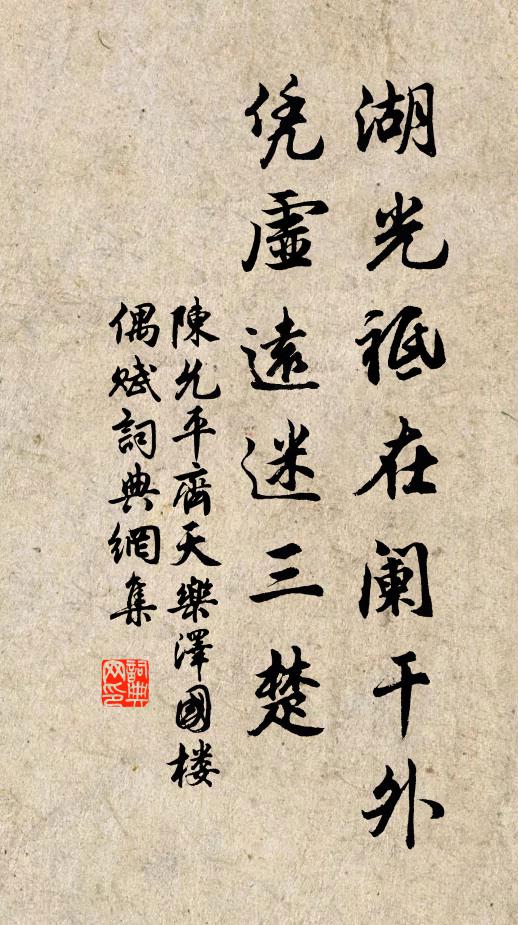 湖光祗在阑干外
凭虚遠迷三楚
陳允平齊天樂澤國楼
偶赋詞典網集
詞典
网印